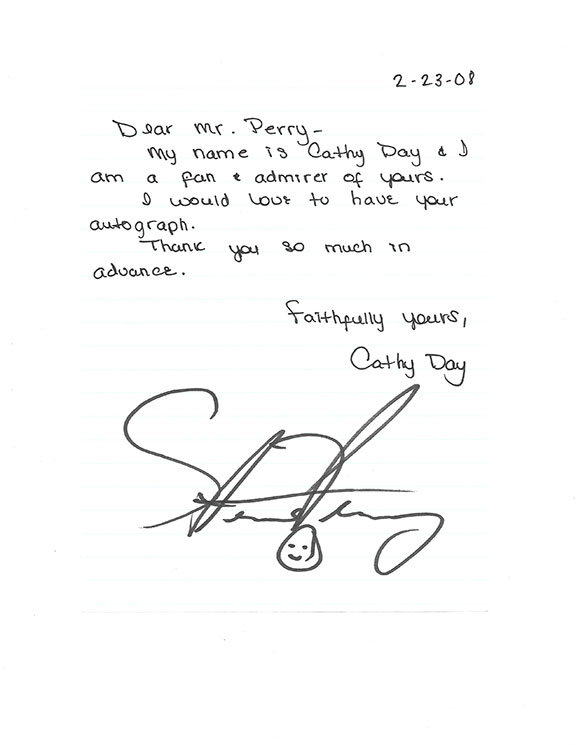 2-23-08
Dear Mr. Perry-
My name is Cathy Day & I
am a fan & admirer of yours.
I would love to have your
autograph.
Thank you so much in
advance.
Faithfully yours,
Cathy Day
Steve Perry